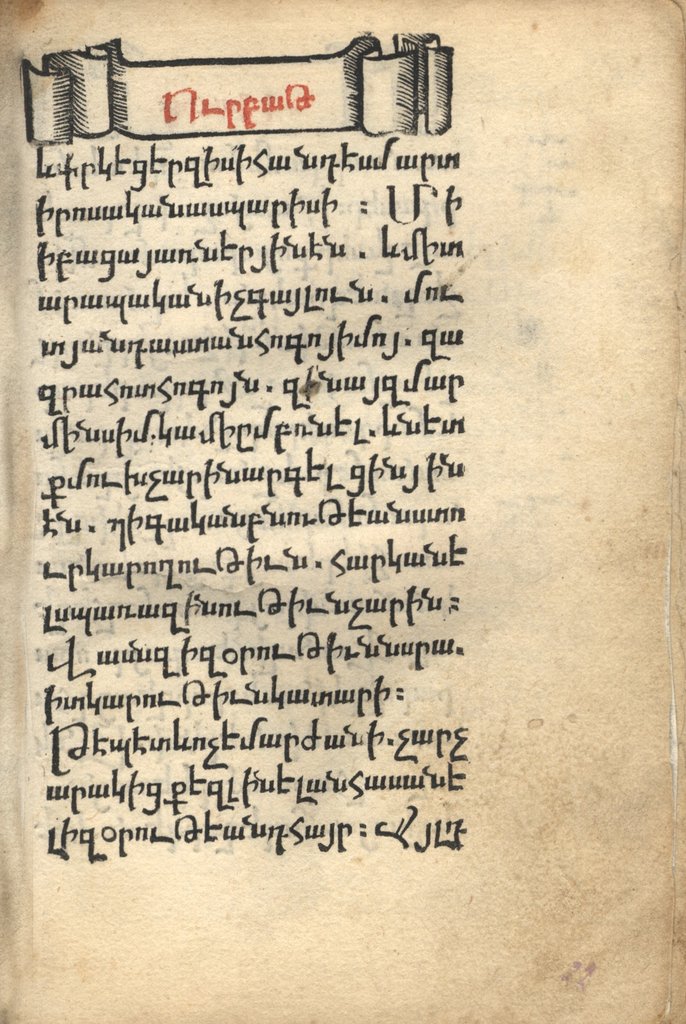 Ուրբաթ
ևփրկեցերզիսիհանդեամարտ
իրոսականասպարիսի : Մ ի
իբացայառներյինէն . ևմիտ
արապականիչգայլուն . մու
տյանդաստանհոգոյիմոյ . զա
զրահոտհոգոյն . զինայզմար
մինսիմկամիըմբռնել . ևնետ
քմուխչարինարգելցինյին
էն . դիգականբնութեանստո
ւրկարողութիւն . հարկանե
լսպառազինութիւնչարին :
Վ ասնզիզօրութիւննսրա.
իտկարութիւնսկատարի :
Թեպետևոչեմարժանի . չարչ
արակիցքեզլինելանհասանե
լիզօրութեանդհայր : Այլդ